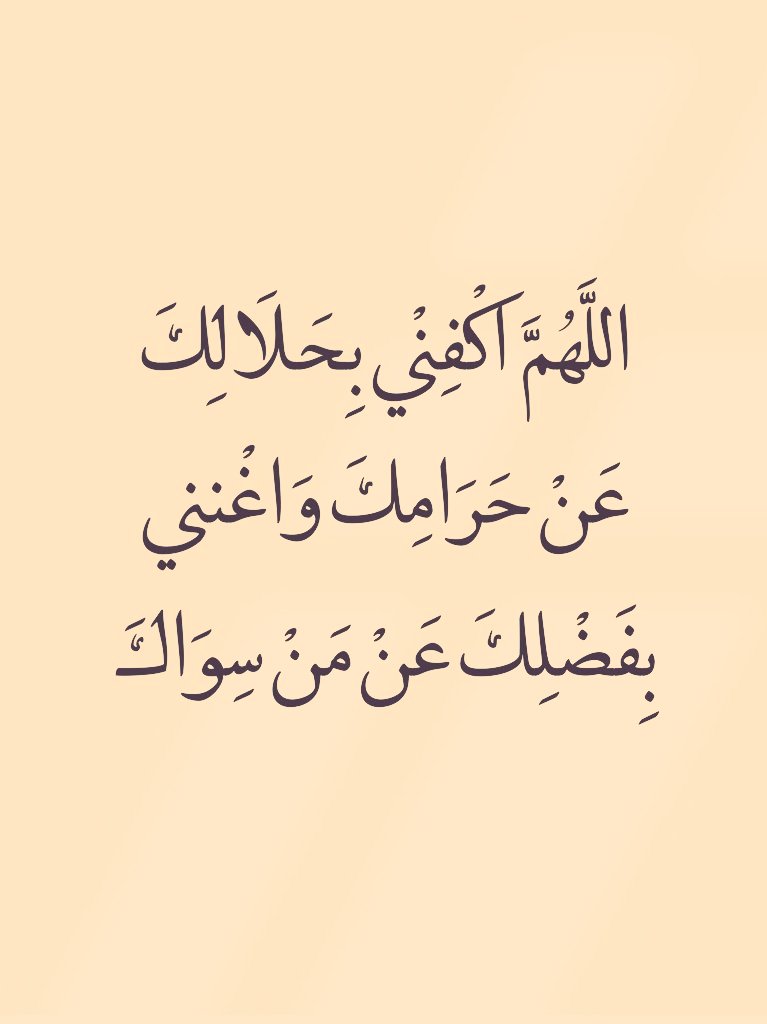 اللَّهُمَّ اكْفِنْي بِحَلَالِكَ
عَنْ حَرَامِكَ وَاغْنني
بِفَضْلِكَ عَنْ مَنْ سِوَاكَ